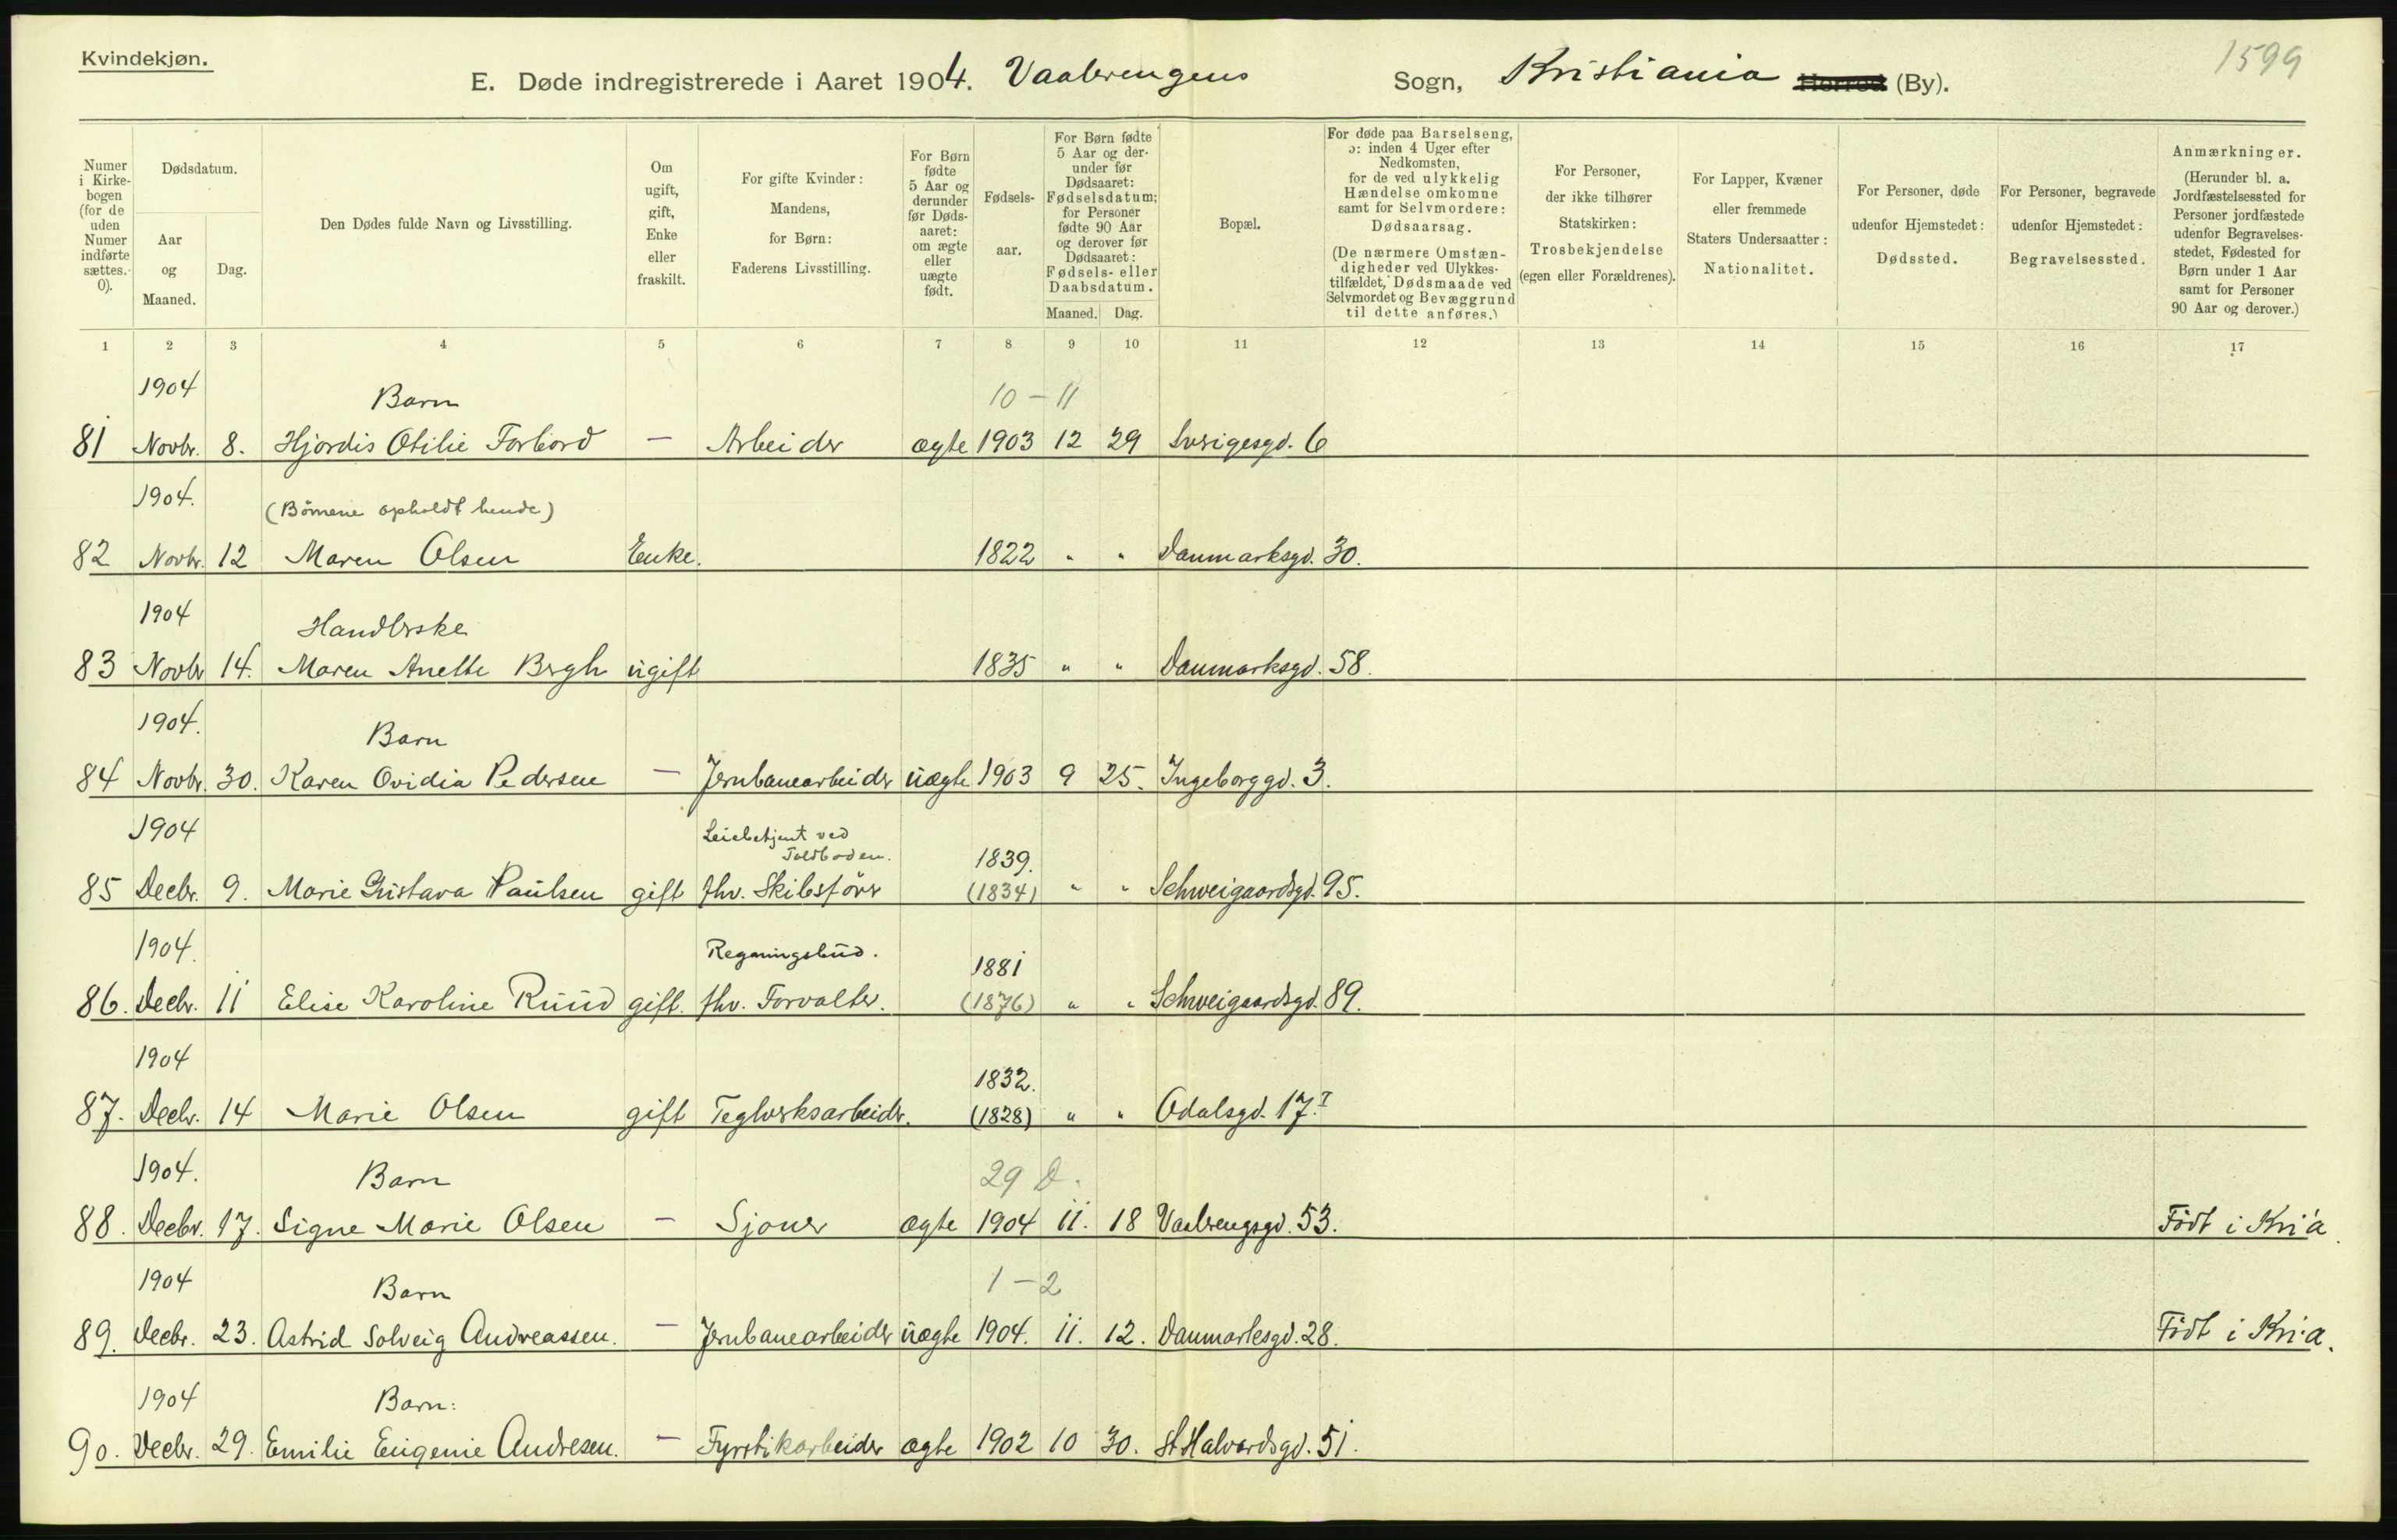 Kvindekjøn.
1599
E. Døde indregistrerede i Aaret 1904. Vaalerengens Sogn, Kristiania Herred (By).
Numer i Kirkebogen (for de uden Numer indførte sættes 0).
Dødsdatum.
Aar og Maaned.
Dag.
Den Dødes fulde Navn og Livsstilling.
Om ugift, gift, Enke eller fraskilt.
For gifte Kvinder: Mandens, for Børn: Faderens Livsstilling.
For Børn fødte 5 Aar og derunder før Dødsaaret: om ægte eller uægte født.
Fødselsaar.
For Børn fødte 5 Aar og derunder før Dødsaaret: Fødselsdatum; for Personer fødte 90 Aar og derover før Dødsaaret: Fødsels- eller Daabsdatum.
Maaned. Dag.
Bopæl.
For døde paa Barselseng, ɔ: inden 4 Uger efter Nedkomsten, for de ved ulykkelig Hændelse omkomne samt for Selvmordere: Dødsaarsag.
(De nærmere Omstændigheder ved Ulykkestilfældet, Dødsmaade ved Selvmordet og Bevæggrund til dette anføres.)
For Personer, der ikke tilhører Statskirken: Trosbekjendelse (egen eller Forældrenes).
For Lapper, Kvæner eller fremmede Staters Undersaatter: Nationalitet.
For Personer, døde udenfor Hjemstedet: Dødssted.
For Personer, begravede udenfor Hjemstedet: Begravelsessted.
Anmærkninger.
(Herunder bl. a. Jordfæstelsessted for Personer jordfæstede udenfor Begravelsesstedet, Fødested for Børn under 1 Aar samt for Personer 90 Aar og derover.)
1 2 3 4 5 6 7 8 9 10 11 12 13 14 15 16 17
1904 Barn 10-11
81 Novbr. 8. Hjördis Otilie Forbord — Arbeider ægte 1903 12 29 Sverigesgd. 6
1904. (Börnene opholdt hende)
82 Novbr. 12 Maren Olsen Enke. 1822 " " Danmarksgd. 30.
1904 Handlerske
83 Novbr 14. Maren Anette Bergh ugift 1835 " " Danmarksgd. 58.
1904. Barn
84 Novbr. 30. Karen Ovidia Pedersen — Jernbanearbeider uægte 1903 9 25. Ingeborggd. 3.
1904 Leiebetjent ved Toldboden. 1839.
85 Decbr. 9. Marie Gustava Paulsen gift fhv. Skibsförer (1834) " " Schweigaardsgd. 95.
1904. Regningsbud. 1881
86. Decbr. 11 Elise Karoline Ruud gift. fhv. Forvalter. (1876) " " Schweigaardsgd. 89.
1904 1832.
87. Decbr. 14 Marie Olsen gift Teglverksarbeider. (1828) " " Odalsgd. 17.I
1904. Barn 29 D.
88. Decbr. 17. Signe Marie Olsen — Sjouer ægte 1904 11. 18 Vaalrengsgd. 53. Födt i Kria.
1904 Barn 1-2
89. Decbr. 23. Astrid Solveig Andreassen. — Jernbanearbeider uægte 1904. 11. 12. Danmarksgd. 28. Födt i Kria.
1904 Barn:
90. Decbr. 29. Emilie Eugenie Andresen. — Fyrstikarbeider ægte 1902 10 30. St Halvardsgd. 51.